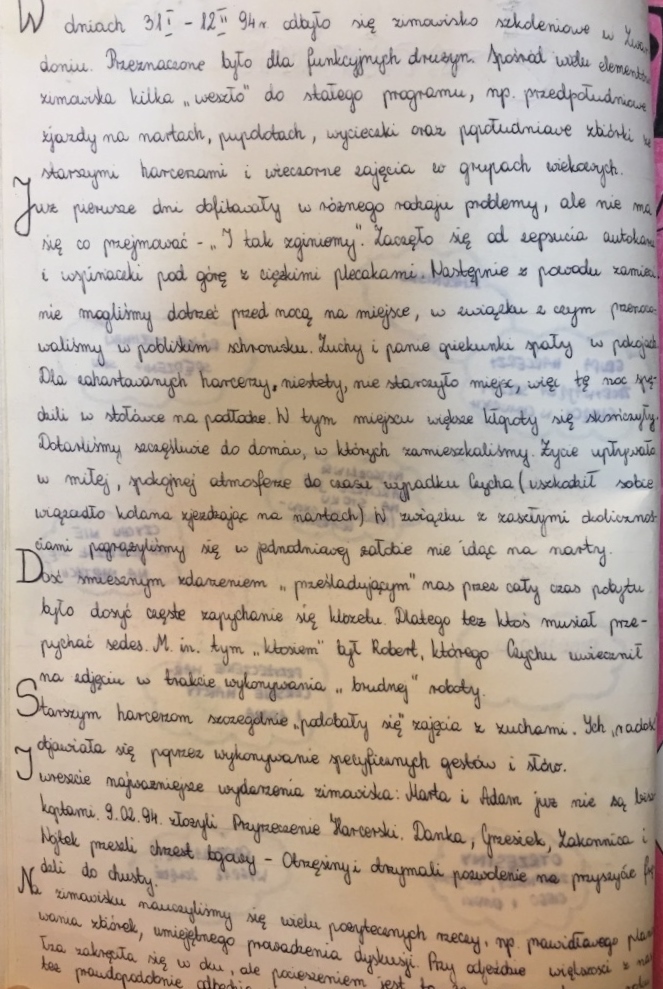 W dniach 31 I - 12 II 94r. odbyło się zimowisko szkoleniowe w Zwar-
doniu. Przeznaczone było dla funkcyjnych drużyn. Spośród wielu elementów
zimowiska kilka „weszło" do stałego programu, np. przedpołudniowe
zjazdy na nartach, pupolotach, wycieczki oraz popołudniowe zbiórki ze
starszymi harcerzami i wieczorne zajęcia w grupach wiekowych.
Już pierwsze dni obfitowały w różnego rodzaju problemy, ale nie ma
się co przejmować - „I tak zginiemy". Zaczęło się od zepsucia autokaru
i wspinaczki pod górę z ciężkimi plecakami. Następnie z powodu zamieci
nie mogliśmy dobrzeć przed nocą na miejsce, w związku z czym przeno-
waliśmy w pobliskim schronisku. Zuchy i panie opiekunki spały w pokojach
Dla zahartowanych harcerzy, niestety, nie starczyło miejsc, więc tę noc spę-
dzili w stołówce na podłodze. W tym miejscu większe kłopoty się skończyły.
Dotarliśmy szczęśliwie do domów, w których zamieszkaliśmy. Życie upływało
w miłej, spokojnej atmosferze do czasu wypadku Czycha (uszkodził sobie
wiązadło kolana zjeżdżając na nartach) W związku z zaszłymi okolicznoś-
ciami pogrążyliśmy się w jednodniowej żałobie nie idąc na narty.
Dość śmiesznym zdarzeniem „prześladującym" nas przez cały czas pobytu
było dosyć częste zapychanie się klozetu. Dlatego też ktoś musiał prze-
pychać sedes. M. in. tym „ktosiem" był Robert, którego Czychu uwiecznił
na zdjęciu w trakcie wykonywania „brudnej" roboty.
Starszym harcerzom szczególnie „podobały się" zajęcia z zuchami. Ich „radość
objawiała się poprzez wykonywanie specyficznych gestów i słów.
I wreszcie najważniejsze wydarzenia zimowiska: Marta i Adam już nie są bisz-
koptami. 9.02.94. złożyli Przyrzeczenie Harcerski. Danka, Grzesiek, Zakonnica i
Wojtek przeszli chrzest bojowy - Otrzęsiny i otrzymali pozwolenie na przyszycie frę
dzli do chusty.
Na zimowisku nauczyliśmy się wielu pożytecznych rzeczy, np. prawidłowego plano
wania zbiórek, umiejętnego prowadzenia dyskusji. Przy odjeździe większości z nas
łza zakręciła się w oku, ale pocieszeniem jest to
też prawdopodobnie odbędzie